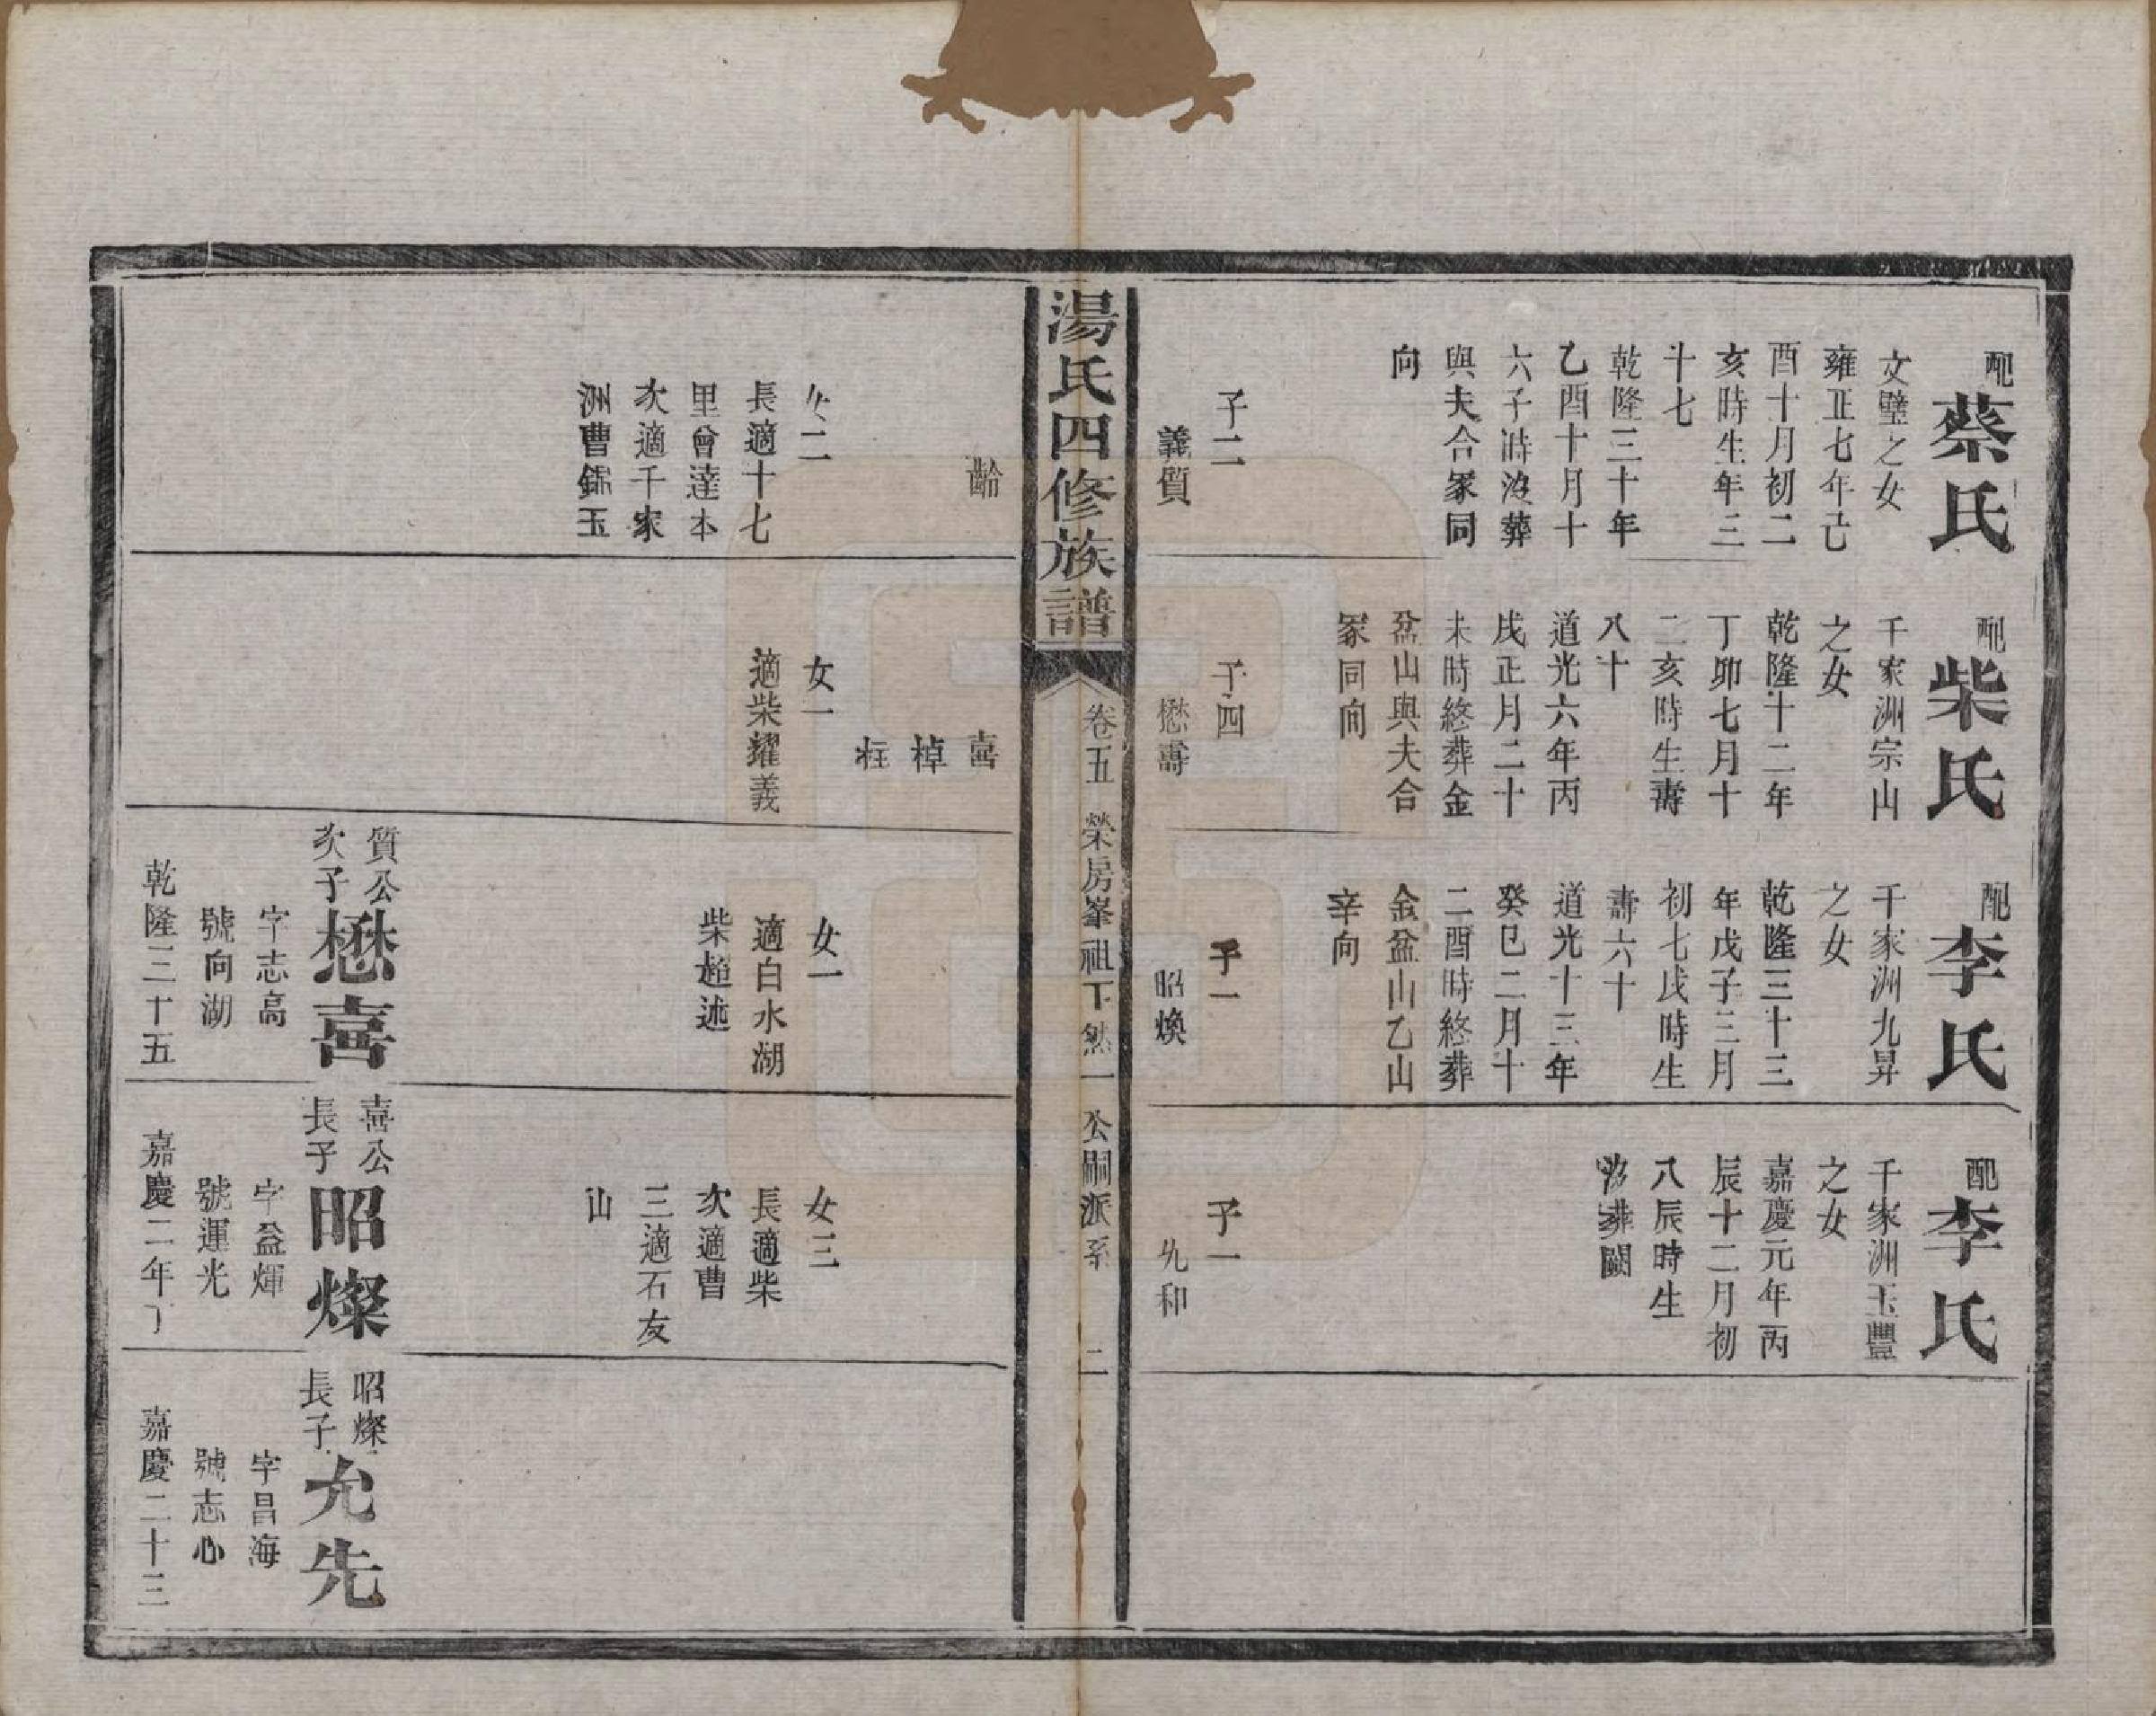 配蔡氏
文璧之女
雍正七年己
酉十月初二
亥時生年三
十七
乾隆三十年
乙酉十月十
六子時沒葬
與夫合冢同
向
子二
義質
配柴氏
千家洲宗山
之女
乾隆十二年
丁卯七月十
二亥時生壽
八十
道光六年丙
戌正月二十
未時終葬金
盆山與夫合
冢同向
子四
懋壽
配李氏
千家洲九昇
之女
乾隆三十三
年戊子三月
初七戌時生
壽六十
道光十三年
癸巳二月十
二酉時終葬
金盆山乙山
辛向
子一
昭煥
配李氏
千家洲玉豐
之女
嘉慶元年丙
辰十二月初
八辰時生
沒葬闕
子一
允和
湯氏四修族譜
卷五
榮房峯祖下然一公嗣派系
二
齡
女二
長適十七
里曾達本
次適千家
洲曹錦玉
喜
棹
枉
女一
適柴耀義
女一
適白水湖
柴超述
質公
次子
懋喜
字志高
號向湖
乾隆三十五
女三
長適柴
次適曹
三適石友
山
喜公
長子
昭燦
字益煇
號運光
嘉慶二年丁
昭燦
長子
允先
字昌海
號志心
嘉慶二十三